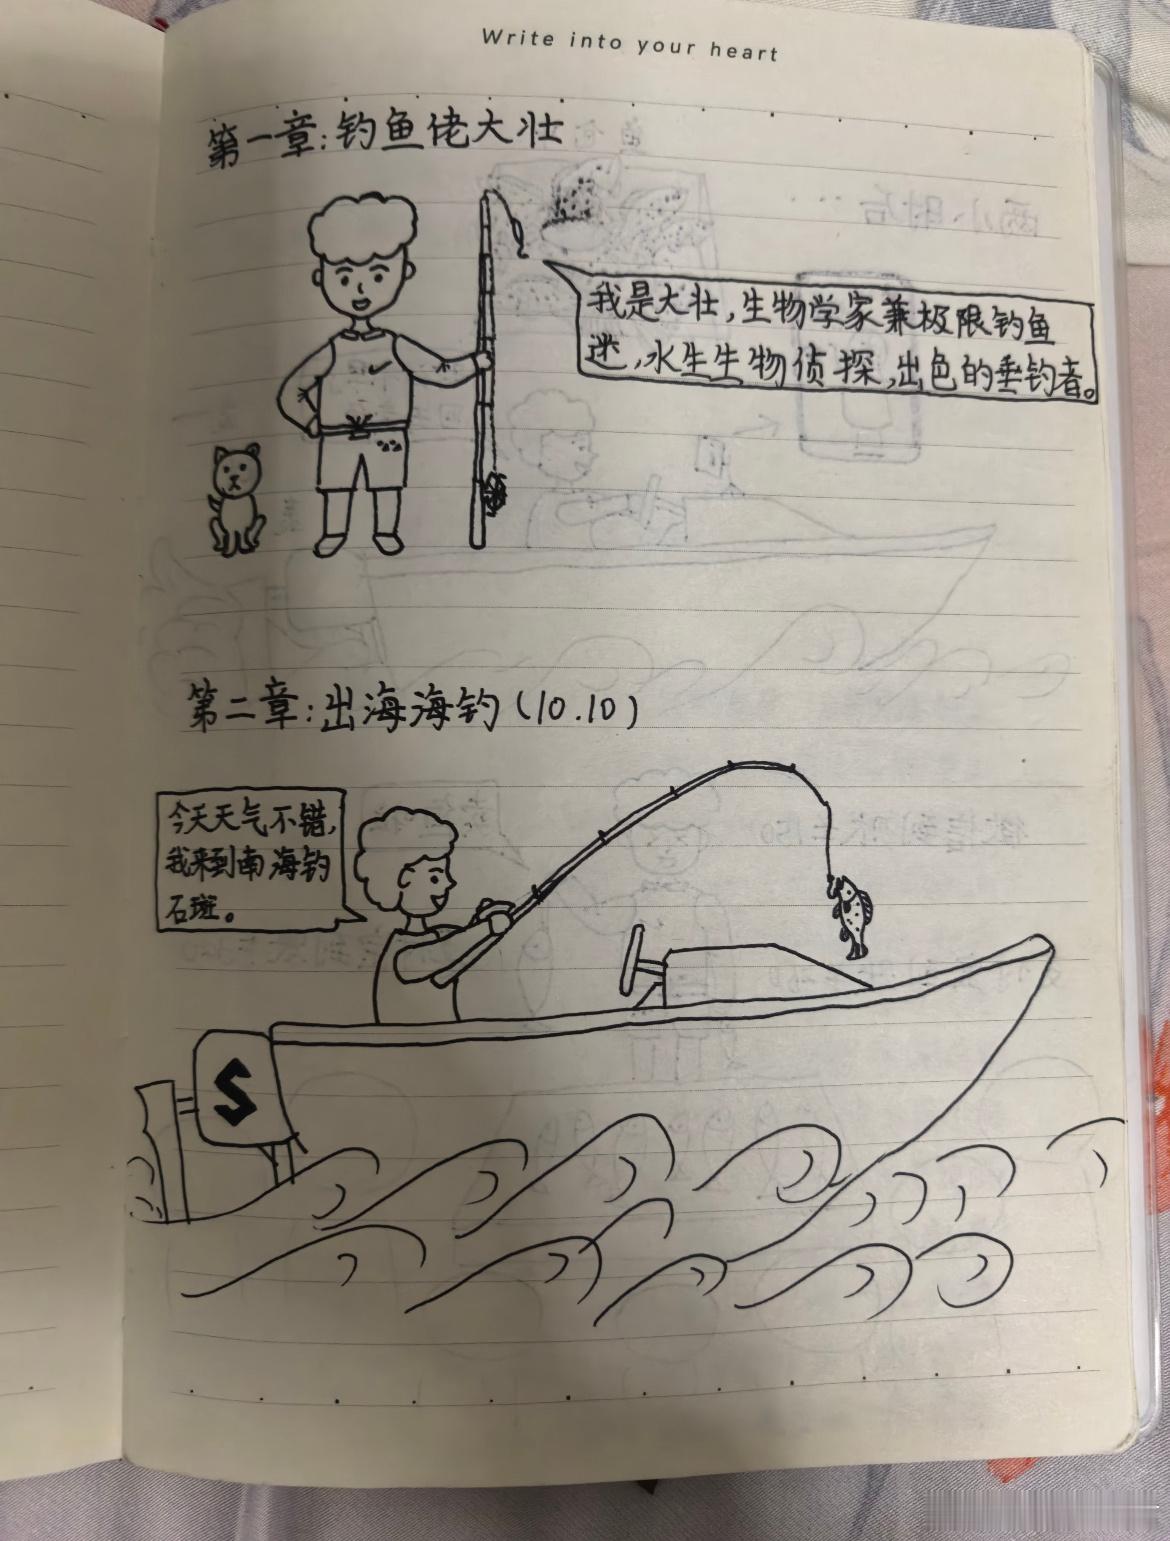 Write into your heart
第一章:钓鱼佬大壮
我是大壮,生物学家兼极限钓鱼
迷,水生生物侦探,出色的垂钓者。
第二章:出海海钓(10.10)
今天天气不错,
我来到南海钓
石斑。
S
两小时后……